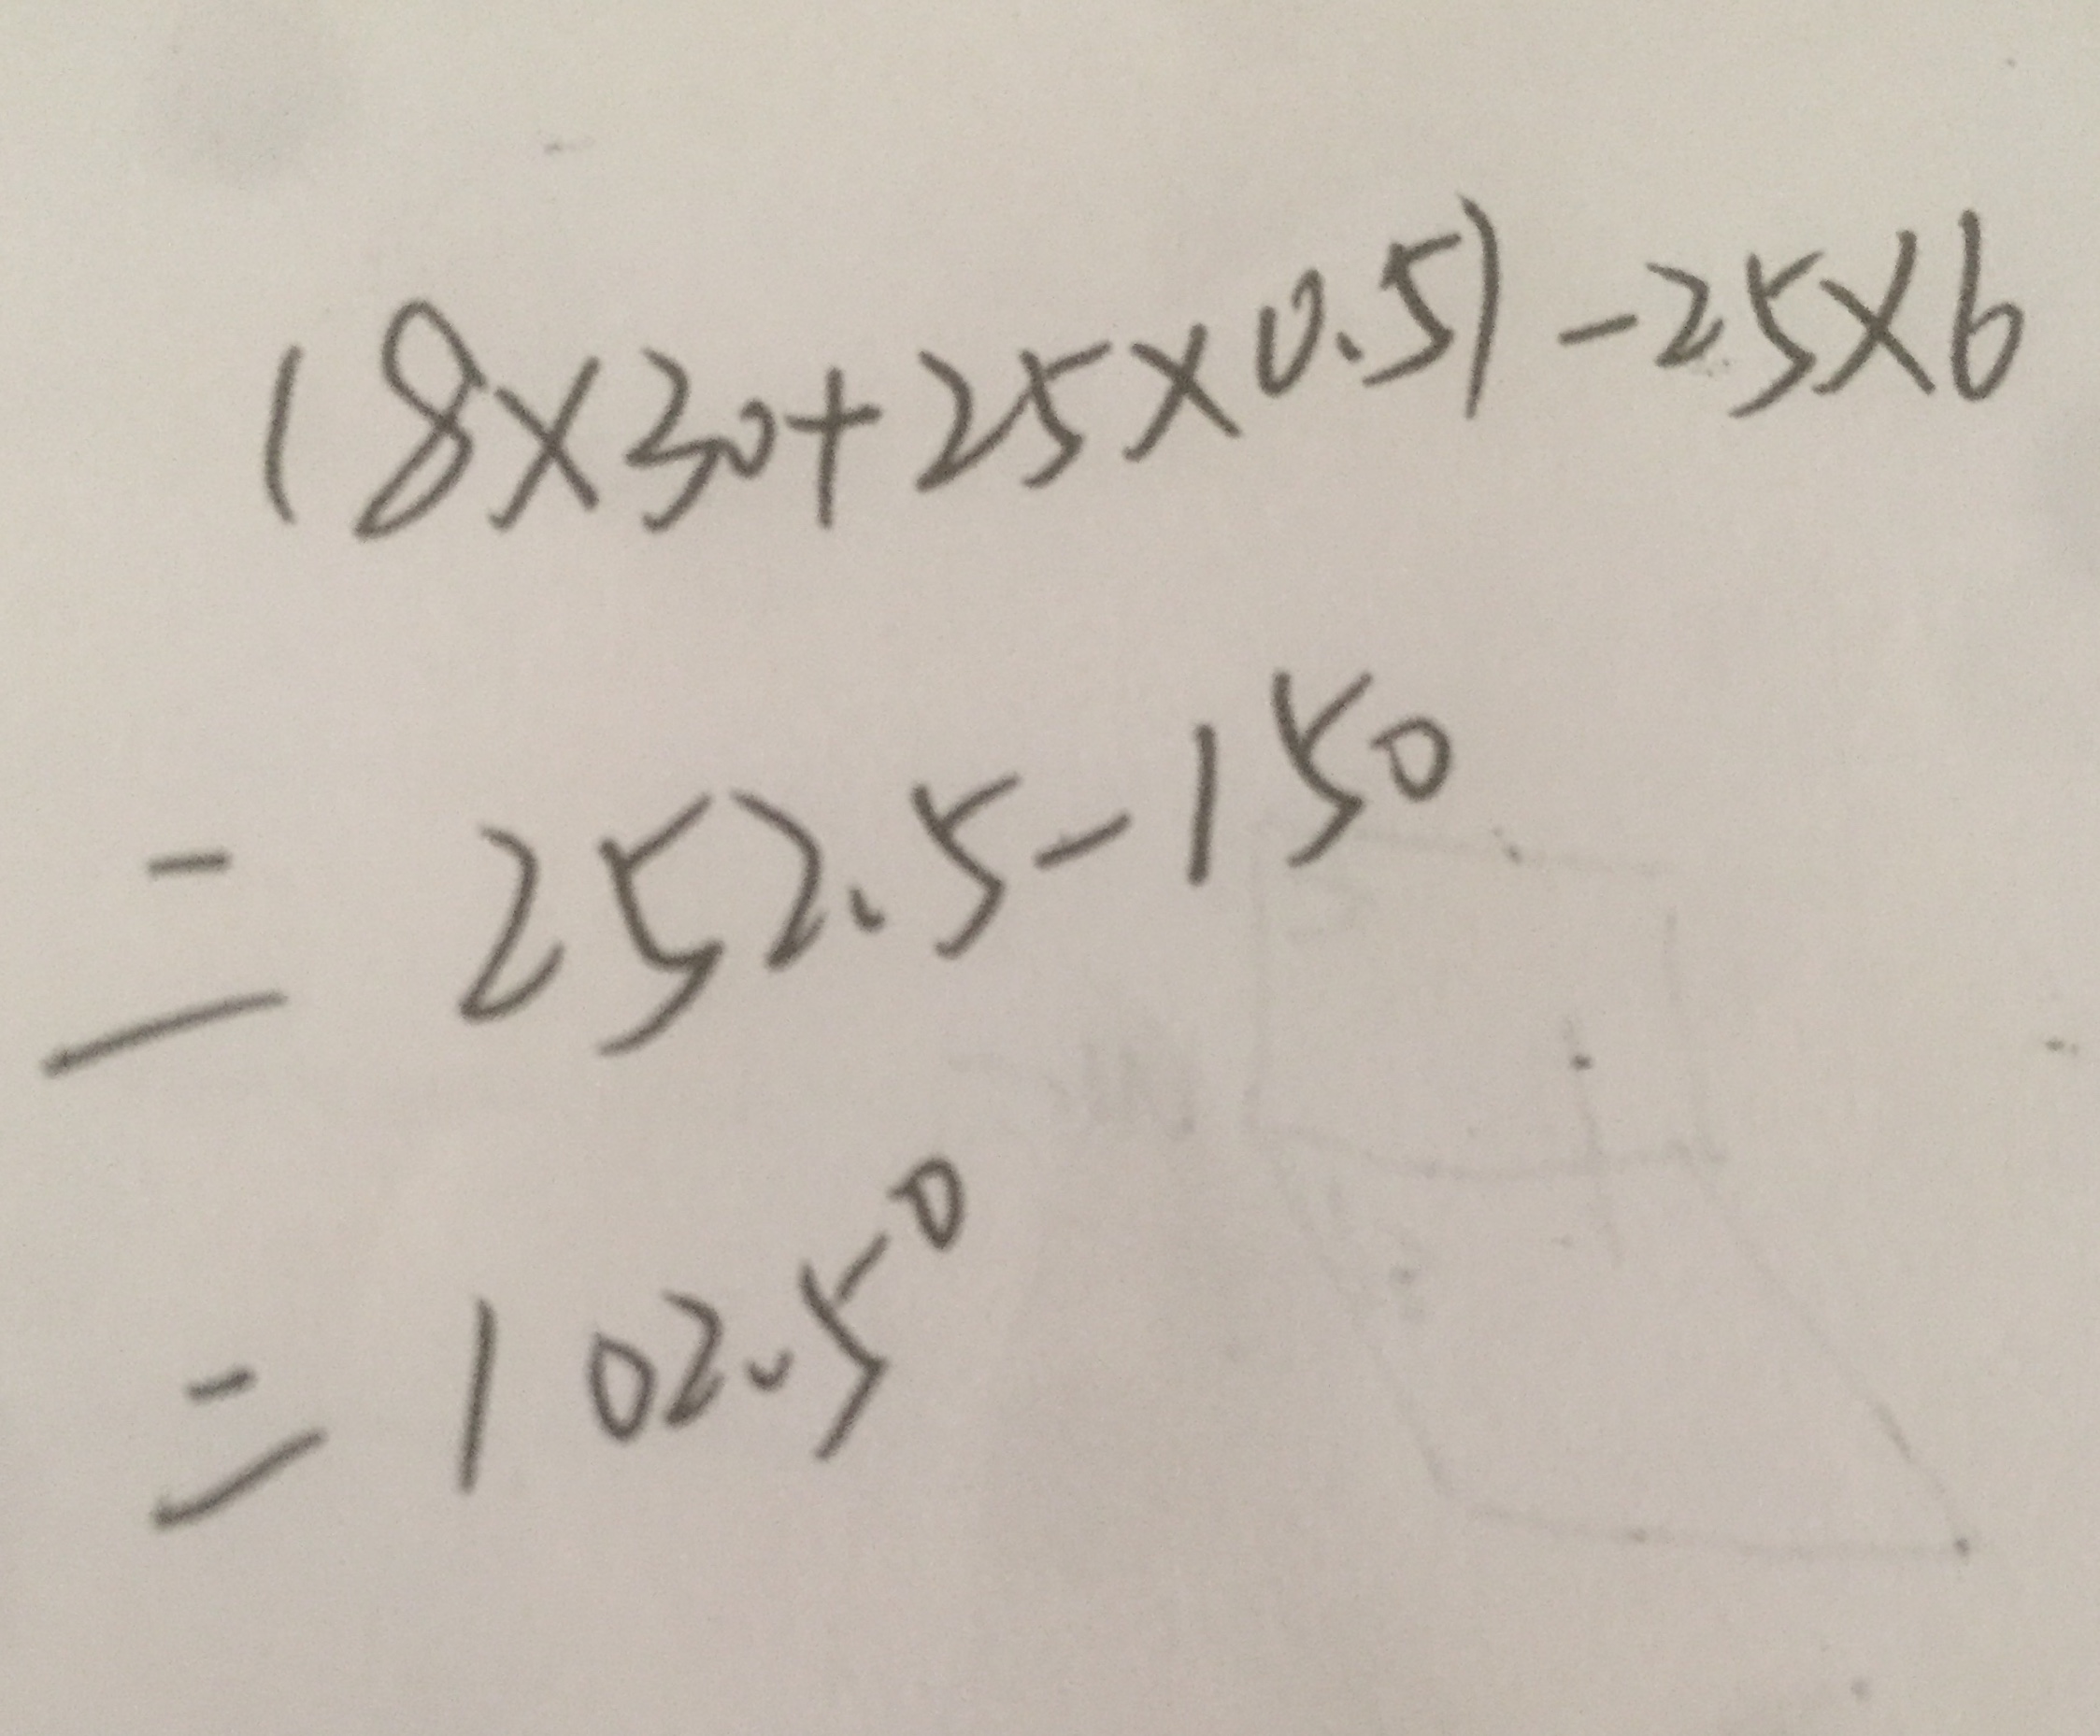 (8×30+25×0.5)-25×6
=252.5-150
=102.5°